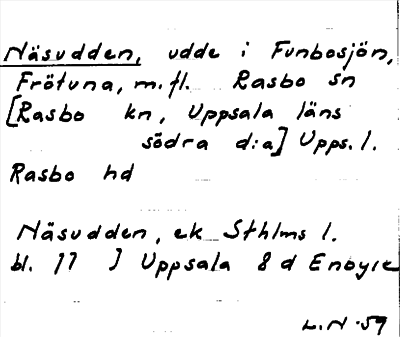 Näsudden, udde i Funbosjön,
Frötuna, m.fl. Rasbo sn
[Rasbo kn, Uppsala läns
södra d:a] Upps. l.
Rasbo hd
Näsudden, ek Sthlms l.
bl. 11 J Uppsala 8 d Enbyle
L.N -59